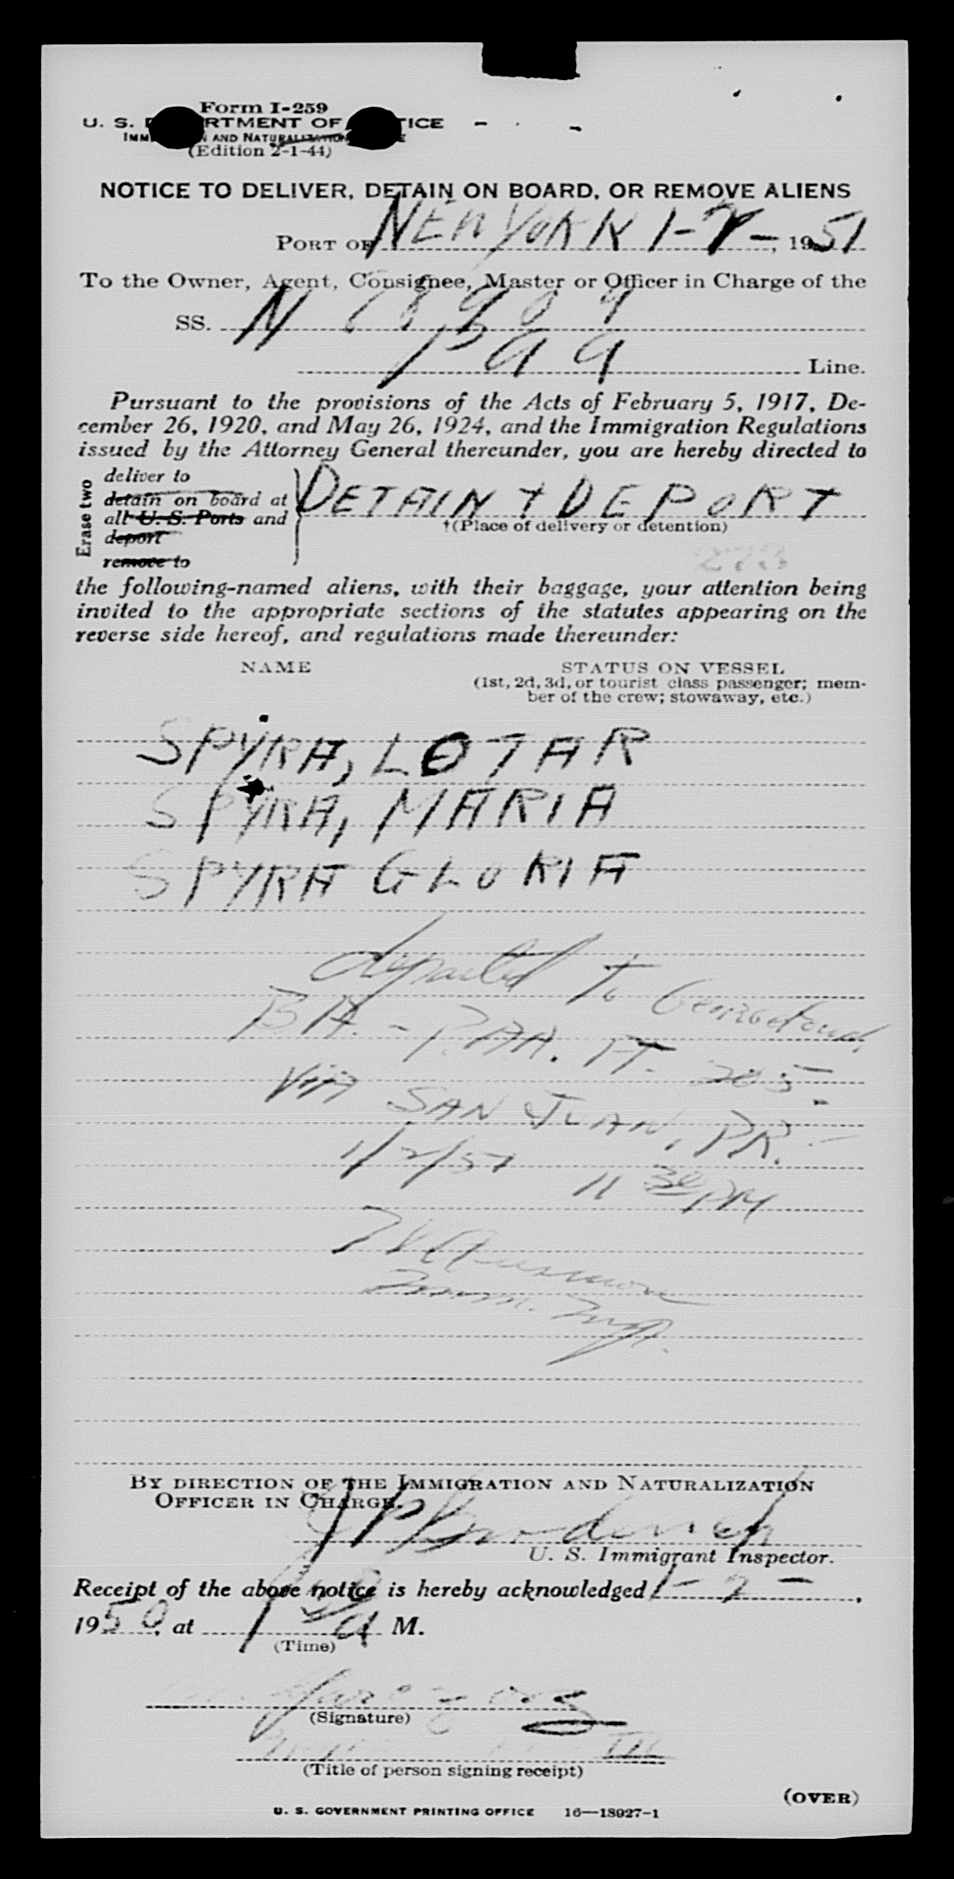 Form I-259
U. S. DEPARTMENT OF JUSTICE
IMMIGRATION AND NATURALIZATION SERVICE
(Edition 2-1-44)
NOTICE TO DELIVER, DETAIN ON BOARD, OR REMOVE ALIENS
PORT OF NEW YORK 1-2-, 1951
To the Owner, Agent, Consignee, Master or Officer in Charge of the
SS. N 88909
PAA Line.
Pursuant to the provisions of the Acts of February 5, 1917, De-
cember 26, 1920, and May 26, 1924, and the Immigration Regulations
issued by the Attorney General thereunder, you are hereby directed to
Erase two
deliver to
detain on board at
all U. S. Ports and
deport
remove to
DETAIN + DEPORT
†(Place of delivery or detention)
273
the following-named aliens, with their baggage, your attention being
invited to the appropriate sections of the statutes appearing on the
reverse side hereof, and regulations made thereunder:
NAME STATUS ON VESSEL
(1st, 2d, 3d, or tourist class passenger; mem-
ber of the crew; stowaway, etc.)
SPYRA, LOTAR
SPYRA, MARIA
SPYRA GLORIA
departed to Georgetown,
B.H. - P.AA. FT. 205-
VIA SAN JUAN, P.R. -
1/2/51 11 30 PM
Imm. Insp.
BY DIRECTION OF THE IMMIGRATION AND NATURALIZATION
OFFICER IN CHARGE.
J P Broderick
U. S. Immigrant Inspector.
Receipt of the above notice is hereby acknowledged 1-2-,
1950, at A M.
(Time)
(Signature)
(Title of person signing receipt)
(OVER)
U. S. GOVERNMENT PRINTING OFFICE 16—18927-1